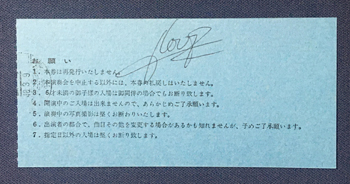 お願い
1. 本券は再発行いたしません。
2. 本演奏会を中止する以外には、本券の払戻しはいたしません。
3. 6才未満のお子様の入場は御同伴の場合でもお断り致します。
4. 開演中のご入場は出来ませんので、あらかじめご了承願います。
5. 演奏中の写真撮影は堅くお断りいたします。
6. 出演者の都合で、曲目その他を変更する場合があるかも知れませんが、予めご了承願います。
7. 指定日以外の入場は堅くお断り致します。